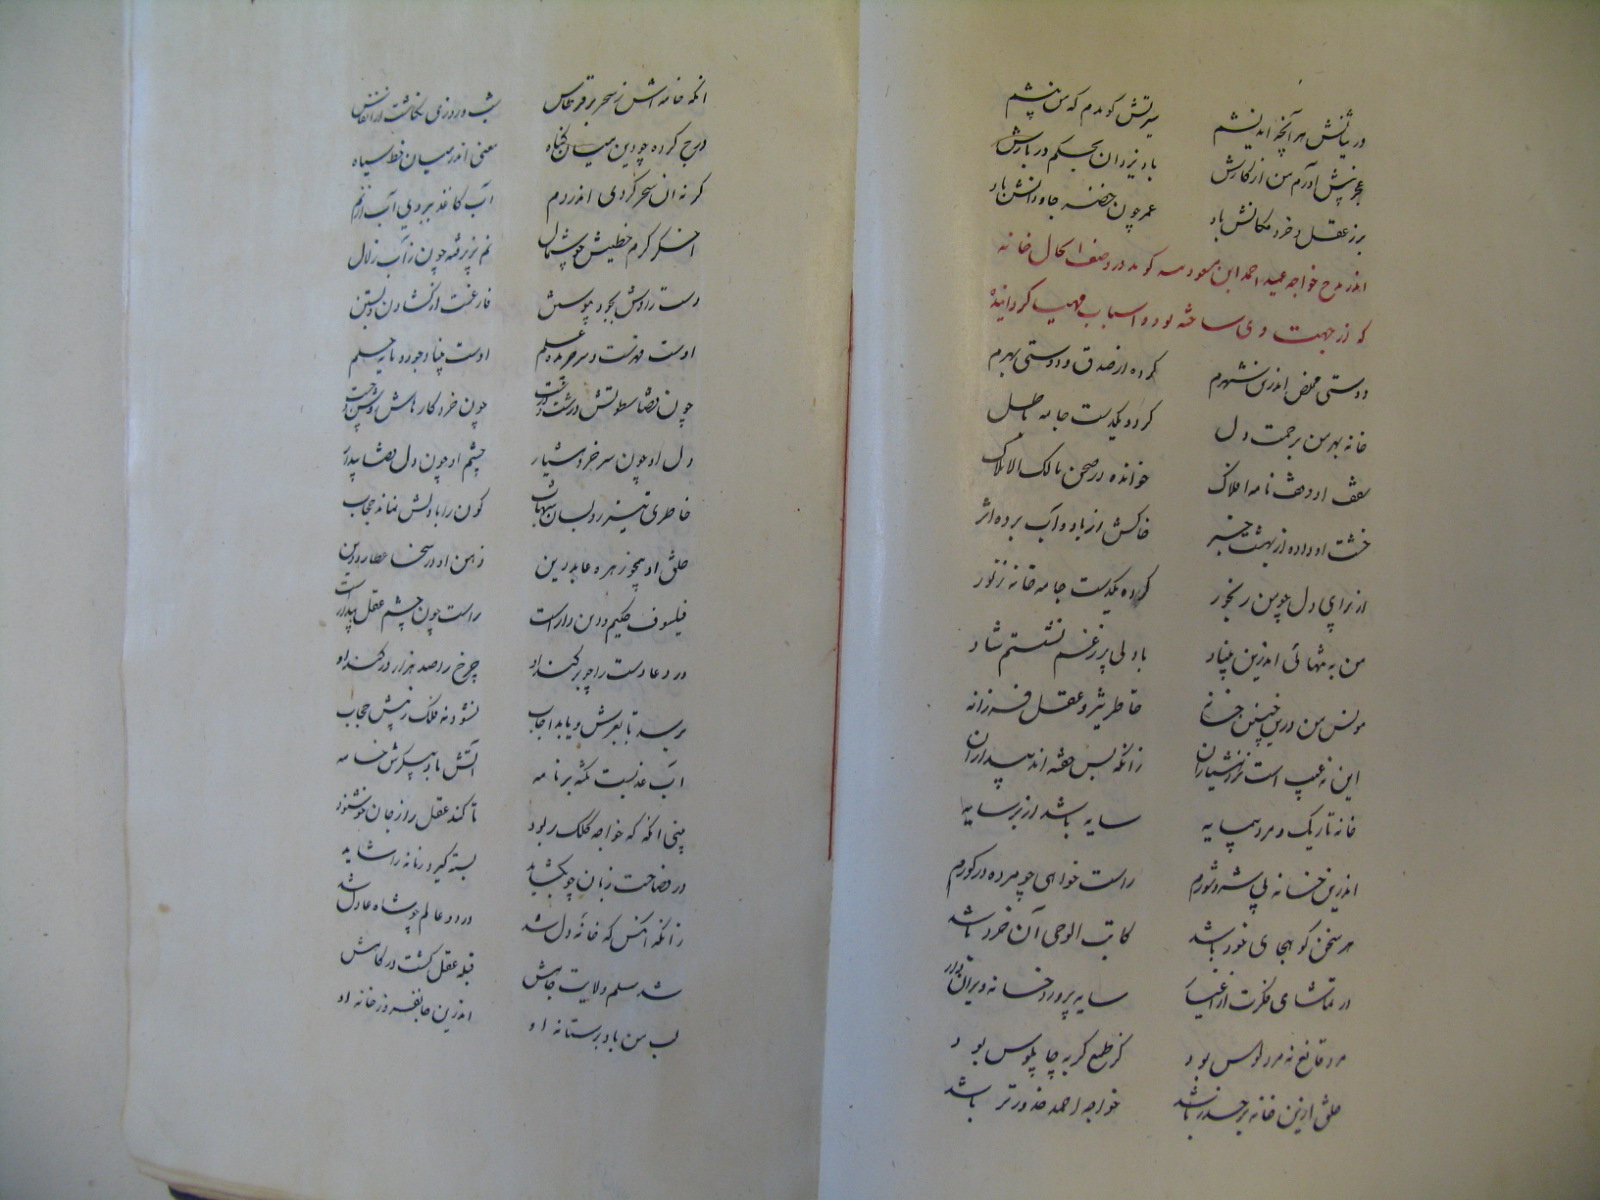 در ثنایش هر آنچه اندیشم سیرتش گویدم که من بیشم
عجز پیش آورم من از کارش باد یزدان بحکم در یارش
برز عقل و خرد مکانش باد عمر چون خضر جاودانش باد
اندر مدح خواجه عمید احمد ابن مسعود تیشه گوید در وصف الحال خانه
که از جهت وی ساخته بود و اسباب مهیا کردانیده
دوستی مخلص اندرین شهرم کرده از صدق و دوستی بهرم
خانه بهر من برحمت دل کرد و یکدست جامه باطل
سقف او وقف نامه افلاک خوانده در صحن مالک الاملاک
خشت او داده از بهشت خبر خاکش از باد و آب برده اثر
از برای دل چو من رنجور کرده یکدست جامه خانه ز نور
من به تنهائی اندرین بنیاد با دلی پر ز غم نشستم شاد
مونس من درین چنین خانه خاطر تیز و عقل فرزانه
این نه عیب است نزد هشیاران زانکه بس خفته اند بیداران
خانه تاریک و مرد بیسایه سایه باشد از بر سایه
اندرین خانه بی شر و شورم راست خواهی چو مرده در کورم
هر سخن کو بجای خود باشد کاتب الوحی آن خرد باشد
در تماشای فکرت از اغیار سایه پرورد خانه ویران دار
مرد قانع نه مرد لوس بود کز طمع کربه چاپلوس بود
خلق ازین خانه بر حذر باشد خواجه احمد خود ورتر باشد
انکه خامه اش ز سحر بر قرطاس شب و روزی نکاشت از انفاس
درج کرده چو دین میان کناه معنی اندر میان خط سیاه
کر نه ان سحر کردی اندر دم آب کاغذ ببردی آب از نم
اخکر کرم خطیش خوشحال نم پذیرفته چون ز آب زلال
دست رادش بجود پیوستن فارغست از کشادن و بستن
اوست مهرست و سر مرده علم اوست بنیاد جود و مایه حلم
چون قضا سطوتش درشت و درشت چون خرد کارهاش پشت و پشت
دل او چون سر خرد هشیار چشم او چون دل قضا بیدار
خاطری تیز در لسان شهاب کون را با دلش نماند حجاب
خلق او همچو زهره عابد دین ذهن او در سخا عطارد بین
فیلسوف حکیم و دین دار است راست چون چشم عقل بیدار است
در دعا دست را چو بر کند او چرخ را صد هزار در کند او
برسد تا بعرش و یابد اجاب نشود نه فلک ز پیش حجاب
آب عذبست نکته بر نامه آتش باد پیکرش خامه
بینی انکه که خواجه کلک ربود تا کند عقل را ز جان خوشنود
در فصاحت زبان چو بکشاید بسته کیرد زمانه را شاید
زانکه انکس که خانه دل شد در دو عالم چو شاه عادل شد
شد مسلم ولایت جاهش قبله عقل کشت درکاهش
لب من باد بر ستانه او اندرین جانفروز خانه او